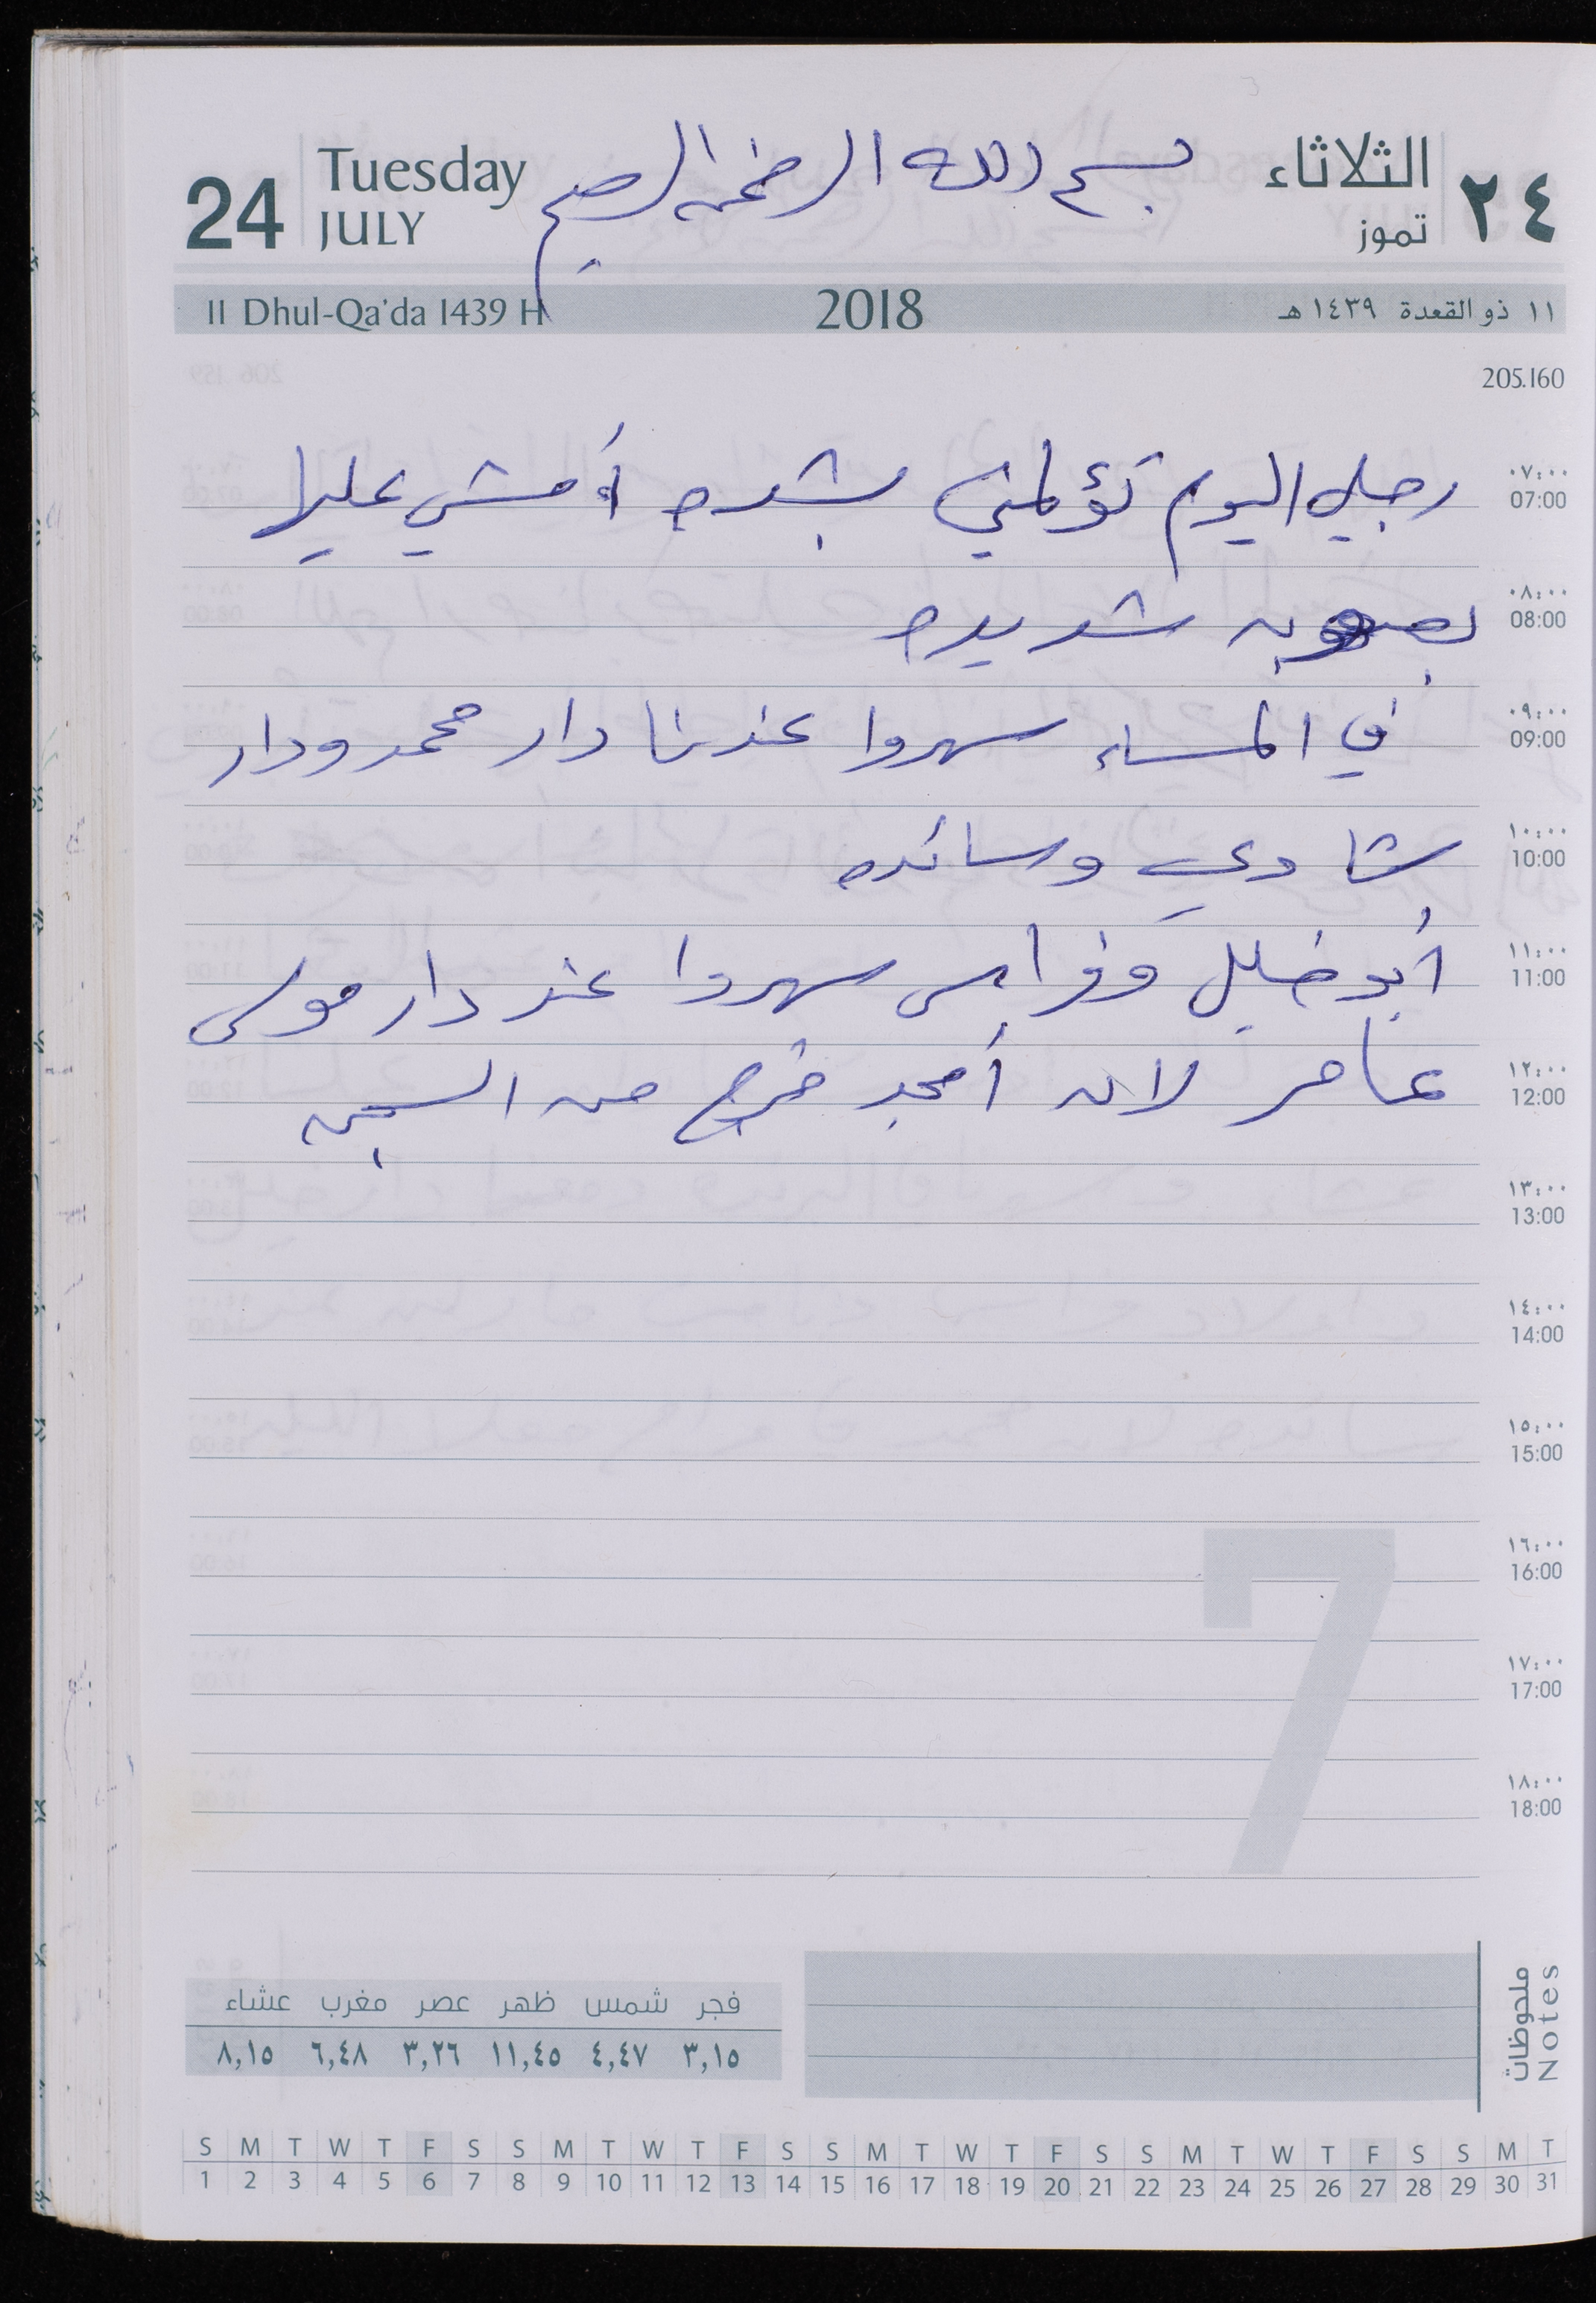 24 Tuesday JULY
بسم الله الرحمن الرحيم
الثلاثاء ٢٤
تموز
11 Dhul-Qa'da 1439 H 2018 ١١ ذو القعدة ١٤٣٩ هـ
205.160
رجلي اليوم تؤلمني بشده أمشي عليها
بصعوبه شديده
في المساء سهروا عندنا دار محمد ودار
شادي وسائده
أبو خليل وفراس سهروا عند دار موسى
عامر لان أمجد خرج من السجن
٠٧:٠٠
07:00
٠٨:٠٠
08:00
٠٩:٠٠
09:00
١٠:٠٠
10:00
١١:٠٠
11:00
١٢:٠٠
12:00
١٣:٠٠
13:00
١٤:٠٠
14:00
١٥:٠٠
15:00
١٦:٠٠
16:00
١٧:٠٠
17:00
١٨:٠٠
18:00
7
ملحوظات
Notes
فجر شمس ظهر عصر مغرب عشاء
٣,١٥ ٤,٤٧ ١١,٤٥ ٣,٢٦ ٦,٤٨ ٨,١٥
S M T W T F S S M T W T F S S M T W T F S S M T W T F S S M T
1 2 3 4 5 6 7 8 9 10 11 12 13 14 15 16 17 18 19 20 21 22 23 24 25 26 27 28 29 30 31